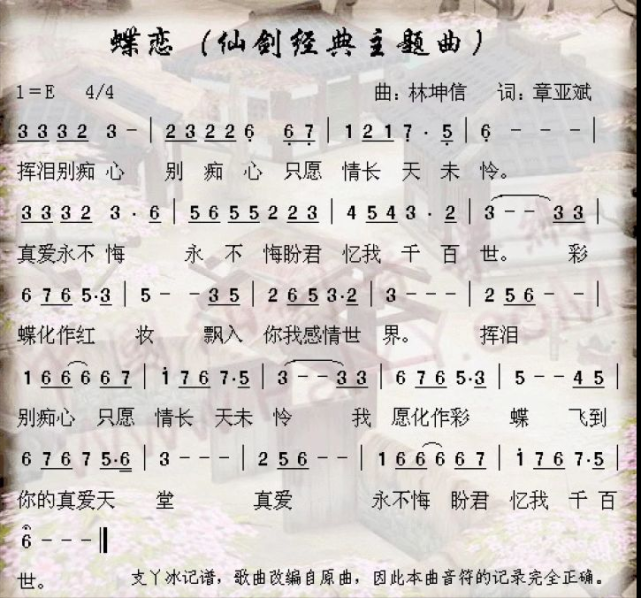 蝶恋（仙剑经典主题曲）
1=E 4/4 曲：林坤信 词：章亚斌
3 3 3 2 3 - | 2 3 2 2 6 6 7 | 1 2 1 7 · 5 | 6 - - - |
挥泪别痴心 别 痴 心 只愿 情长 天 未 怜。
3 3 3 2 3 · 6 | 5 6 5 5 2 2 3 | 4 5 4 3 · 2 | 3 - - 3 3 |
真爱永不悔 永 不 悔盼君 忆我 千 百 世。 彩
6 7 6 5·3 | 5 - - 3 5 | 2 6 5 3·2 | 3 - - - | 2 5 6 - - |
蝶化作红 妆 飘入 你我感情世 界。 挥泪
1 6 6 6 6 7 | 1 7 6 7·5 | 3 - - 3 3 | 6 7 6 5·3 | 5 - - 4 5 |
别痴心 只愿 情长 天未 怜 我 愿化作彩 蝶 飞到
6 7 6 7 5·6 | 3 - - - | 2 5 6 - - | 1 6 6 6 6 7 | 1 7 6 7·5 |
你的真爱天 堂 真爱 永不悔 盼君 忆我 千百
6 - - - ‖
世。 支丫冰记谱，歌曲改编自原曲，因此本曲音符的记录完全正确。